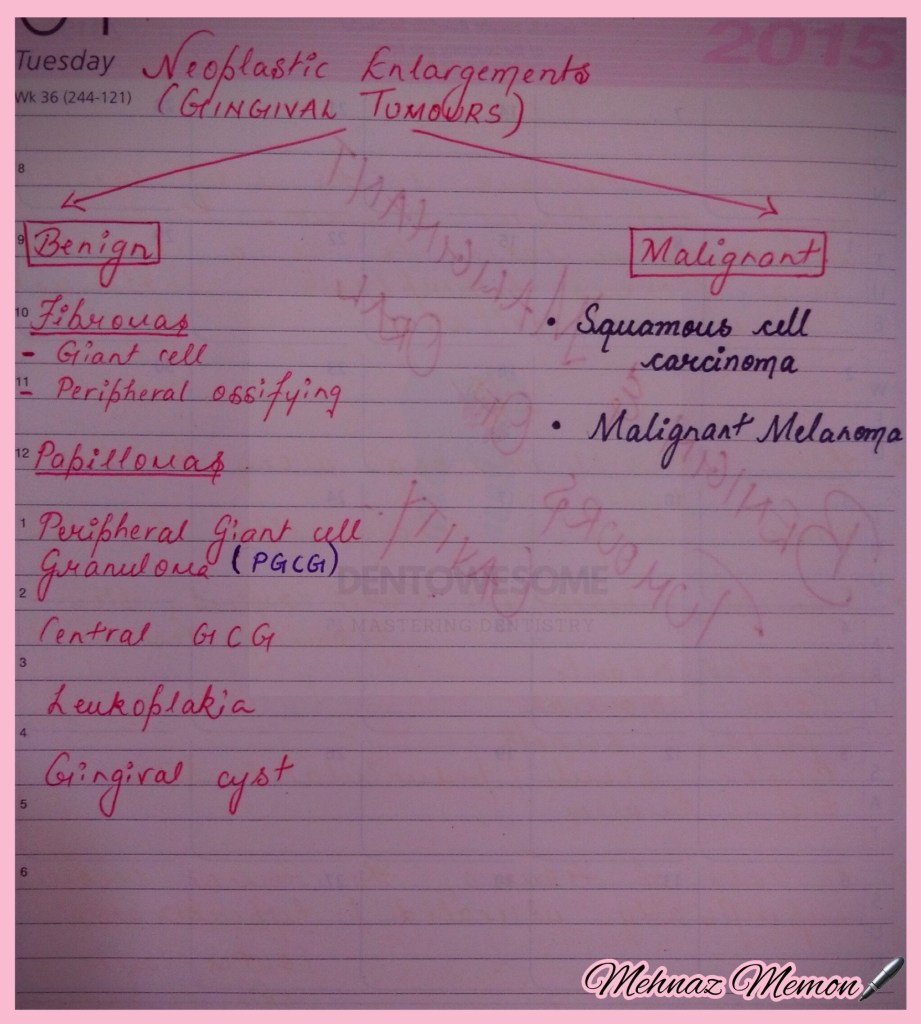 2015
Tuesday
Wk 36 (244-121)
Neoplastic Enlargements
(GINGIVAL TUMOURS)
8
9
Benign
Malignant
10
Fibromas
- Giant cell
11
- Peripheral ossifying
• Squamous cell
carcinoma
• Malignant Melanoma
12
Papillomas
1
Peripheral Giant cell
Granuloma (PGCG)
2
DENTOWESOME
MASTERING DENTISTRY
Central GCG
3
Leukoplakia
4
Gingival cyst
5
6
Mehnaz Memon